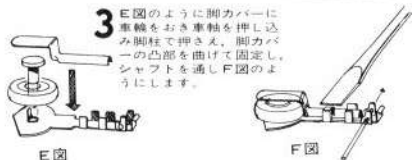 3 E図のように脚カバーに
車輪をおき車軸を押し込
み脚柱で押さえ、脚カバ
ーの凸部を曲げて固定し、
シャフトを通しF図のよ
うにします。
E図
F図